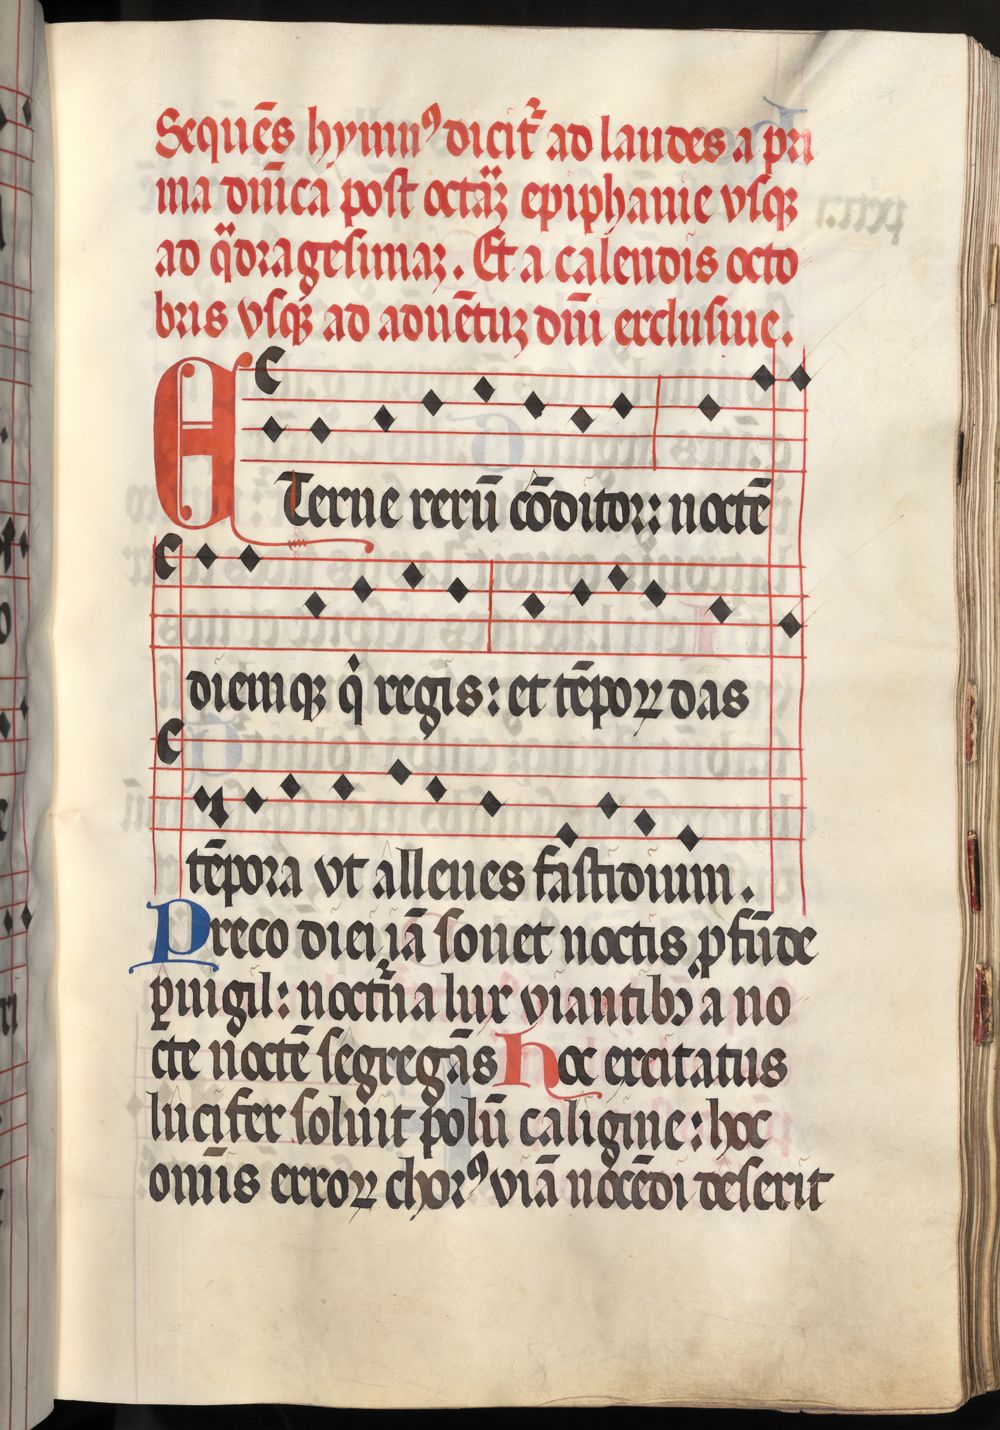 Sequēs hymnꝰ dicit᷑ ad laudes a pri
ma dn̄ica post octaꝝ epiphanie vsqꝫ
ad qᷓdragesimaꝫ. Et a calendis octo
bris vsqꝫ ad aduētuꝫ dn̄i exclusiue.
ETerne rerū cōditor: noctē
diemqꝫ q̇ regis: et tēpoꝝ das
tēpora vt alleues fastidium.
Preco diei iā sonet noctis ꝓfūde
ꝑuigil: noct᷑na lux viantibꝰ a no
cte noctē segregās hoc excitatus
lucifer soluit polū caligine: hoc
om̄is erroꝝ chorꝰ viā nocēdi deserit